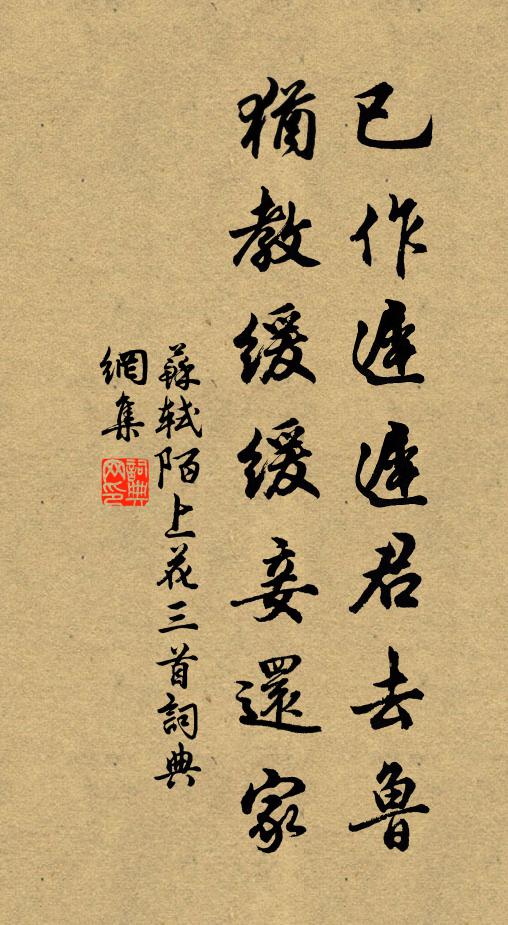 已作遲遲君去魯
猶教緩緩妾還家
蘇軾陌上花三首詞典
網集
詞典
网印